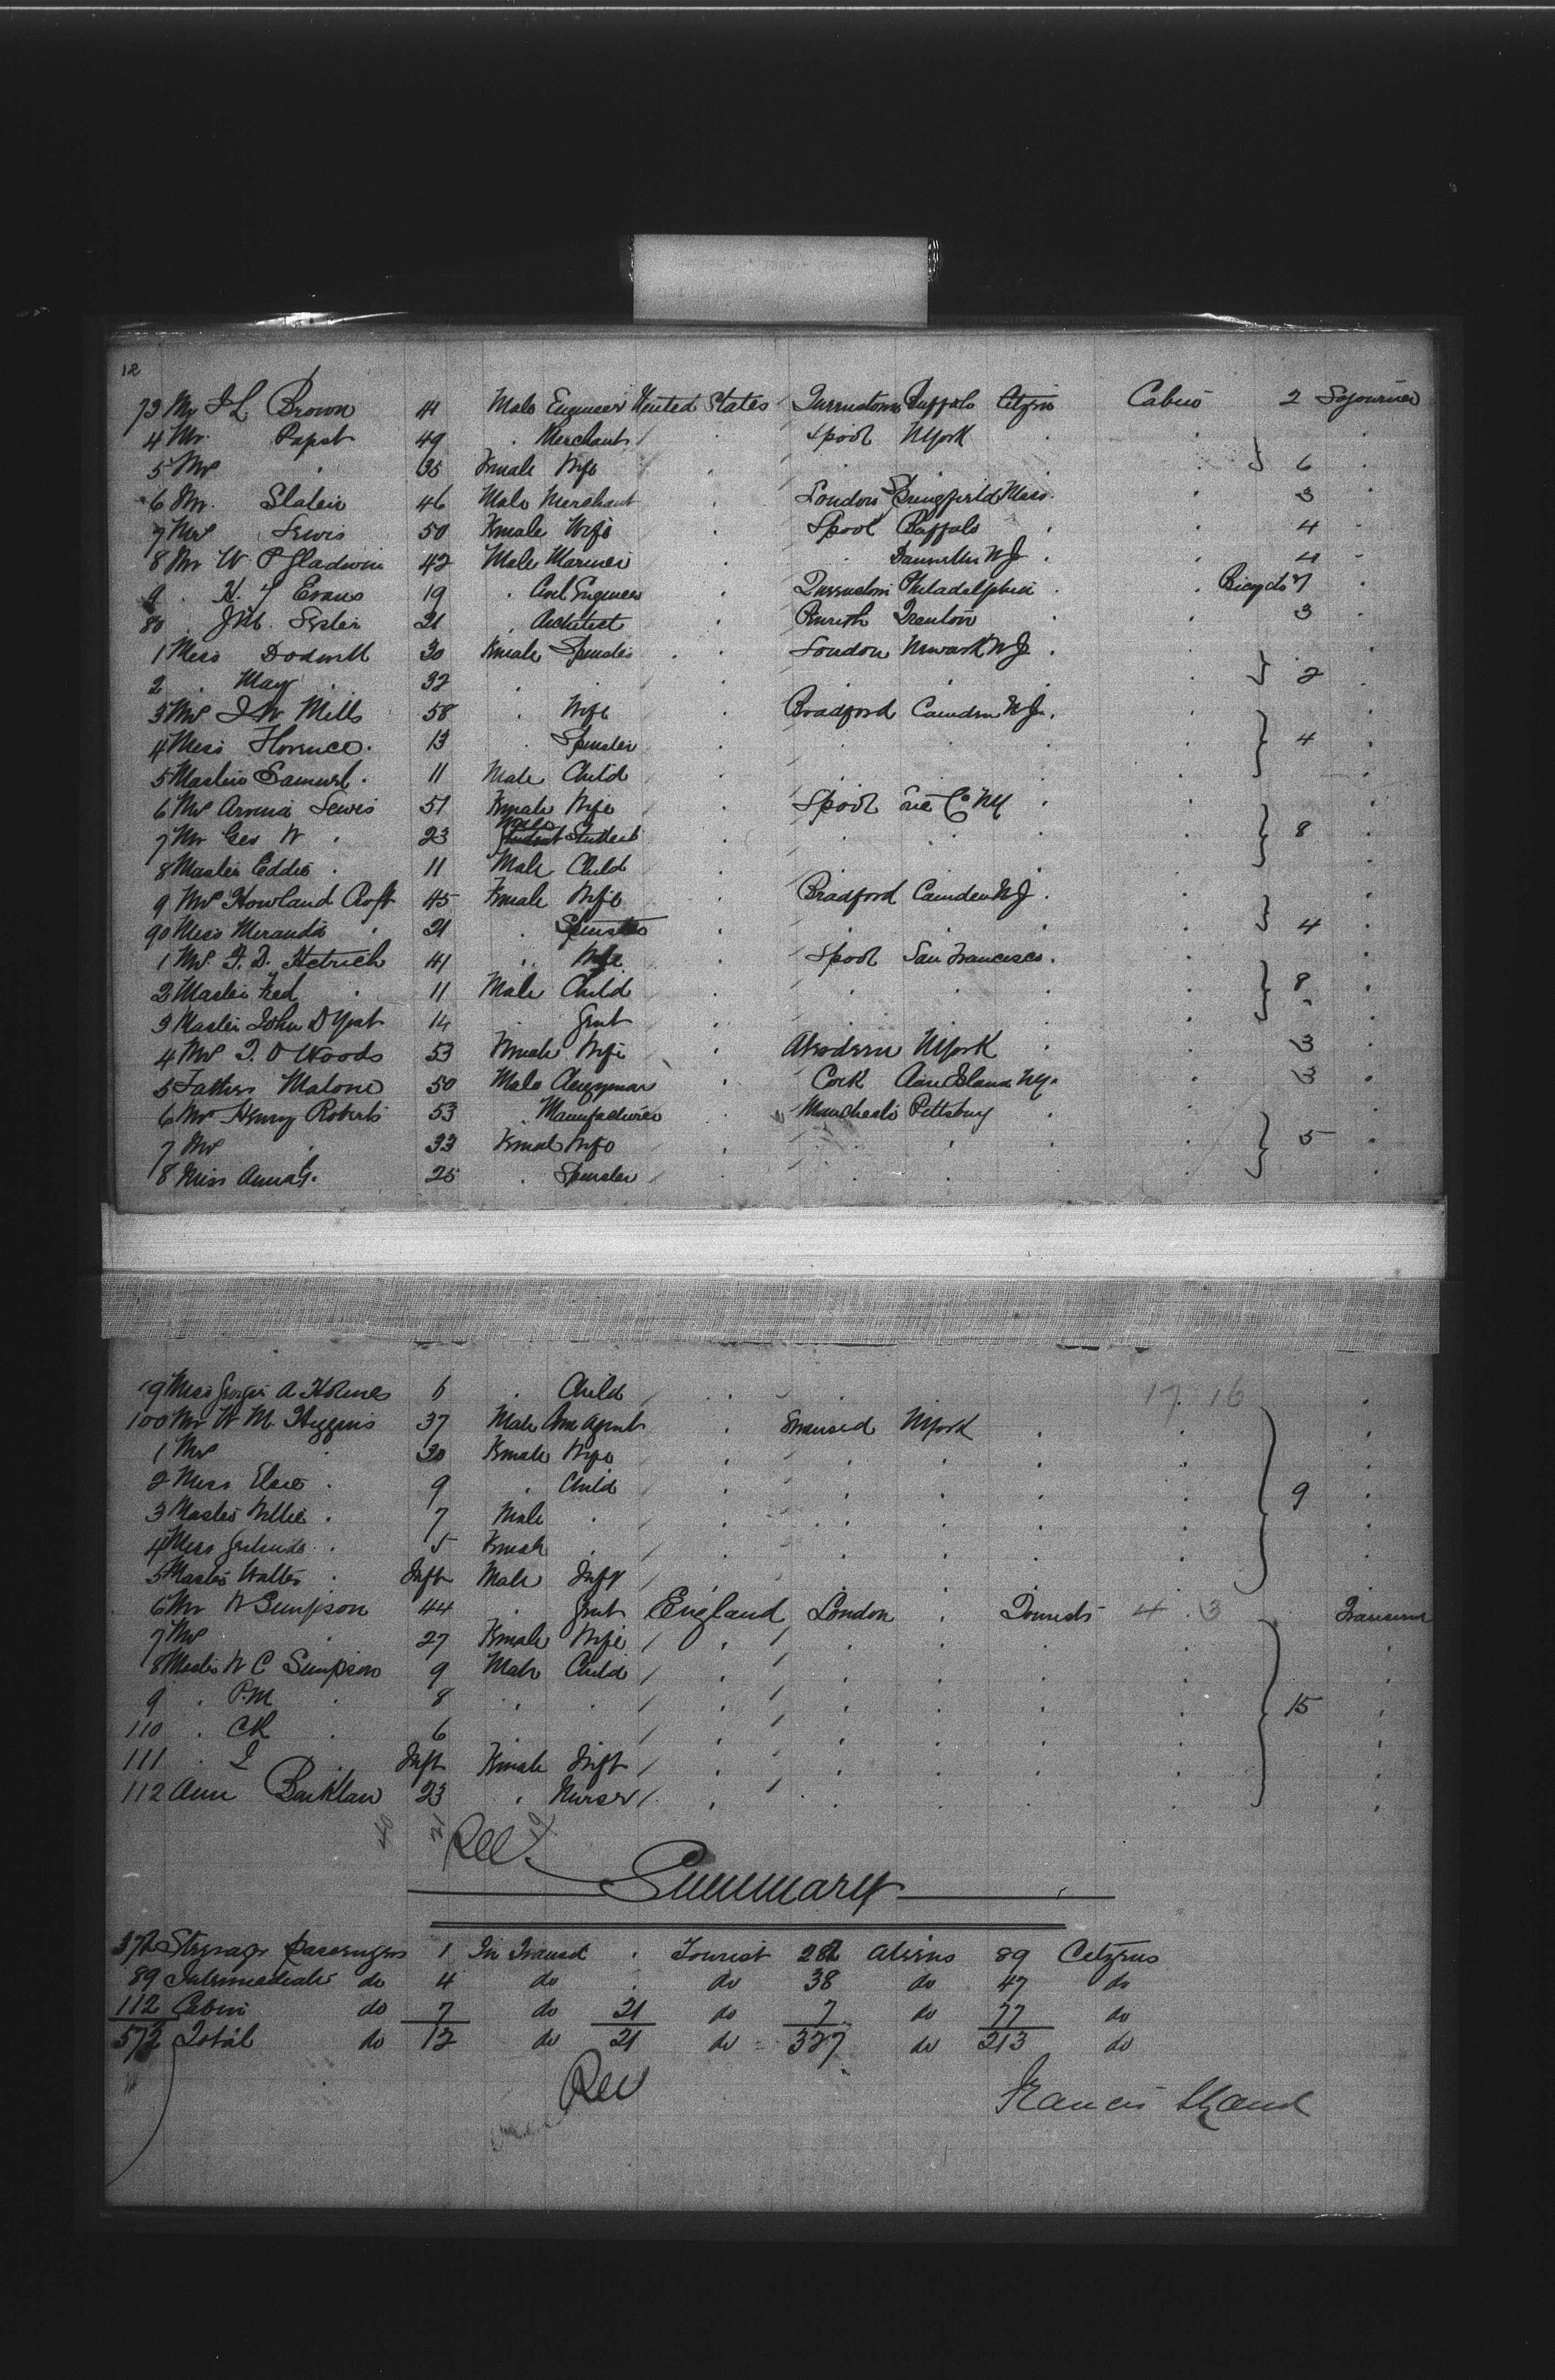 12
73 Mr J L Brown 41 Male Engineer United States Queenstown Buffalo Citizen Cabin 2 Sojourner
4 Mr. Papst 49 . Merchant / . Lpool NYork . . .
5 Mrs . 35 Female Wife . . } 6 .
6 Mr. Slater 46 Male Merchant . London Springfield Mass. . 3 .
7 Mrs Lewis 50 Female Wife . Lpool Buffalo . . 4 .
8 Mr W. P Gladwin 42 Male Mariner . . NJ . . 4 .
9 . H. Y Evans 19 . Civil Engineer . Queenstn Philadelphia . . Bicycle 7 .
80 . Lester 21 . Architect . Penrith Trenton . . 3 .
1 Miss Dodwell 30 Female Spinster . . London Newark NJ . . .
2 . May . 32 . . . . . . . } 2 .
3 Mrs J W Mills 58 . Wife . Bradford Camden NJ. . .
4 Miss Florence . 13 . Spinster . . . . . } 4 .
5 Master Samuel . 11 Male Child . . . . . .
6 Mrs Lewis 51 Female Wife . Lpool Erie Co NY . . .
7 Mr Geo W . 23 Male Student . . . . . } 8 .
8 Master Eddie . 11 Male Child . . . . . .
9 Mrs Howland Croft 45 Female Wife . Bradford Camden NJ . . .
90 Miss Miranda . 21 . Spinster . . . . . } 4 .
1 Mrs. F. D. Hetrich 41 . Wife . Lpool San Francisco . . .
2 Master Fred . 11 Male Child . . . . . } 8 .
3 Master John D Yost 14 . Gent . . . . . .
4 Mrs J. O Woods 53 Female Wife . Aberdeen NYork . . 3 .
5 Father Malone 50 Male Clergyman . Cork Island NY. . 3 .
6 Mr Henry Roberts 53 . Manufacturer . Manchester Pittsburg . . .
7 Mrs . 33 Female Wife . . . . . } 5 .
8 Miss Anna G. 25 . Spinster / . . . . .
9 Miss Georgie A Holmes 6 . Child / . . . 17 16 .
100 Mr W M. Higgins 37 Male Agent . Swansea NYork . . .
1 Mrs . 30 Female Wife . . . . . .
2 Miss Elsie . 9 . Child / . . . . . } 9 .
3 Master Willie . 7 Male . / . . . . . .
4 Miss Gertrude . . 5 Female . / . . . . . .
5 Master Walter . Inft Male Inft / . . . . .
6 Mr W Simpson 44 . Gent England London . Tourists 4 . 3 Transient
7 Mrs . 27 Female Wife / . / . . . . .
8 Master W C Simpson 9 Male Child / . / . . . . .
9 . P.M . 8 . . / . / . . . . } 15 .
110 . CR . 6 / . / . . . . .
111 . I . Inft Female Inft / . . . . . .
112 Ann Barklaw 23 . Nurse / . / . . . . .
Summary
372 Steerage passengers 1 In Transit . Tourist 282 Aliens 89 Citizens
89 Intermediate do 4 do . do 38 do 47 do
112 Cabin do 7 do 21 do 7 do 77 do
573 Total do 12 do 21 do 327 do 213 do
Francis